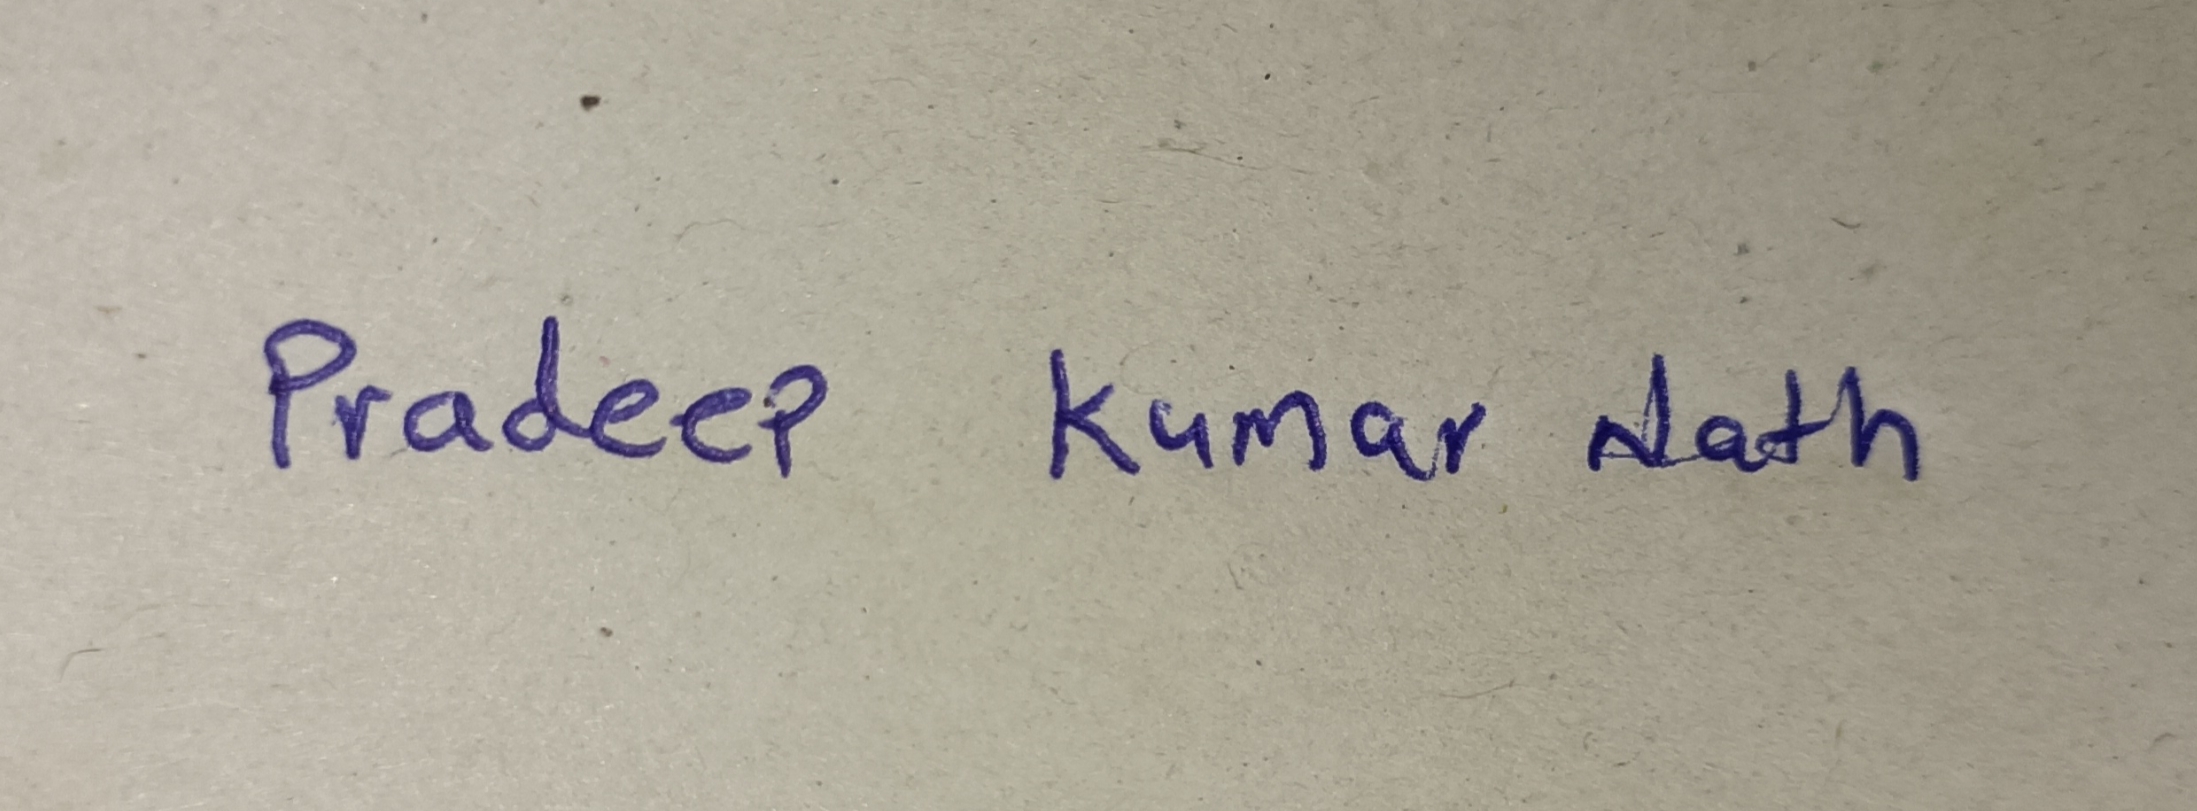 Pradeep Kumar Nath